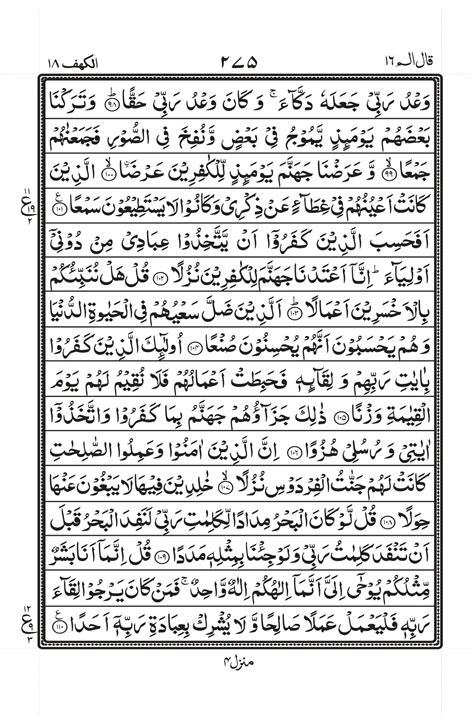 قال الم ١٦ ٢٧٥ الكهف ١٨
وَعْدُ رَبِّیْ جَعَلَهٗ دَكَّآءَ ۚ وَ كَانَ وَعْدُ رَبِّیْ حَقًّا ؕ﴿۹۸﴾ وَ تَرَكْنَا
بَعْضَهُمْ یَوْمَىِٕذٍ یَّمُوْجُ فِیْ بَعْضٍ وَّ نُفِخَ فِی الصُّوْرِ فَجَمَعْنٰهُمْ
جَمْعًا ۙ﴿۹۹﴾ وَّ عَرَضْنَا جَهَنَّمَ یَوْمَىِٕذٍ لِّلْكٰفِرِیْنَ عَرْضَا ۙ﴿۱۰۰﴾ ۟الَّذِیْنَ
كَانَتْ اَعْیُنُهُمْ فِیْ غِطَآءٍ عَنْ ذِكْرِیْ وَ كَانُوْا لَا یَسْتَطِیْعُوْنَ سَمْعًا ﴿۱۰۱﴾ ع
۱۱ ع ۱۹ ۲
اَفَحَسِبَ الَّذِیْنَ كَفَرُوْۤا اَنْ یَّتَّخِذُوْا عِبَادِیْ مِنْ دُوْنِیْۤ
اَوْلِیَآءَ ؕ اِنَّاۤ اَعْتَدْنَا جَهَنَّمَ لِلْكٰفِرِیْنَ نُزُلًا ﴿۱۰۲﴾ قُلْ هَلْ نُنَبِّئُكُمْ
بِالْاَخْسَرِیْنَ اَعْمَالًا ؕ﴿۱۰۳﴾ اَلَّذِیْنَ ضَلَّ سَعْیُهُمْ فِی الْحَیٰوةِ الدُّنْیَا
وَ هُمْ یَحْسَبُوْنَ اَنَّهُمْ یُحْسِنُوْنَ صُنْعًا ﴿۱۰۴﴾ اُولٰٓىِٕكَ الَّذِیْنَ كَفَرُوْا
بِاٰیٰتِ رَبِّهِمْ وَ لِقَآىِٕهٖ فَحَبِطَتْ اَعْمَالُهُمْ فَلَا نُقِیْمُ لَهُمْ یَوْمَ
الْقِیٰمَةِ وَزْنًا ﴿۱۰۵﴾ ذٰلِكَ جَزَآؤُهُمْ جَهَنَّمُ بِمَا كَفَرُوْا وَ اتَّخَذُوْۤا
اٰیٰتِیْ وَ رُسُلِیْ هُزُوًا ﴿۱۰۶﴾ اِنَّ الَّذِیْنَ اٰمَنُوْا وَ عَمِلُوا الصّٰلِحٰتِ
كَانَتْ لَهُمْ جَنّٰتُ الْفِرْدَوْسِ نُزُلًا ۙ﴿۱۰۷﴾ خٰلِدِیْنَ فِیْهَا لَا یَبْغُوْنَ عَنْهَا
حِوَلًا ﴿۱۰۸﴾ قُلْ لَّوْ كَانَ الْبَحْرُ مِدَادًا لِّكَلِمٰتِ رَبِّیْ لَنَفِدَ الْبَحْرُ قَبْلَ
اَنْ تَنْفَدَ كَلِمٰتُ رَبِّیْ وَ لَوْ جِئْنَا بِمِثْلِهٖ مَدَدًا ﴿۱۰۹﴾ قُلْ اِنَّمَاۤ اَنَا بَشَرٌ
مِّثْلُكُمْ یُوْحٰۤی اِلَیَّ اَنَّمَاۤ اِلٰهُكُمْ اِلٰهٌ وَّاحِدٌ ۚ فَمَنْ كَانَ یَرْجُوْا لِقَآءَ
رَبِّهٖ فَلْیَعْمَلْ عَمَلًا صَالِحًا وَّ لَا یُشْرِكْ بِعِبَادَةِ رَبِّهٖۤ اَحَدًا ﴿۱۱۰﴾ ع
۱۲ ع ۹ ۳
منزل ۴